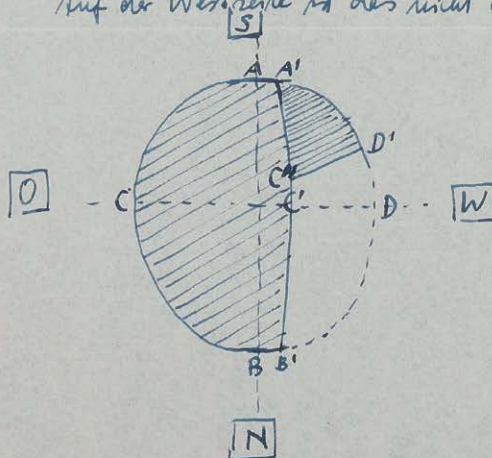 Auf der Westseite ist das nicht
S
A A'
D'
C''
O C C' D W
B B'
N